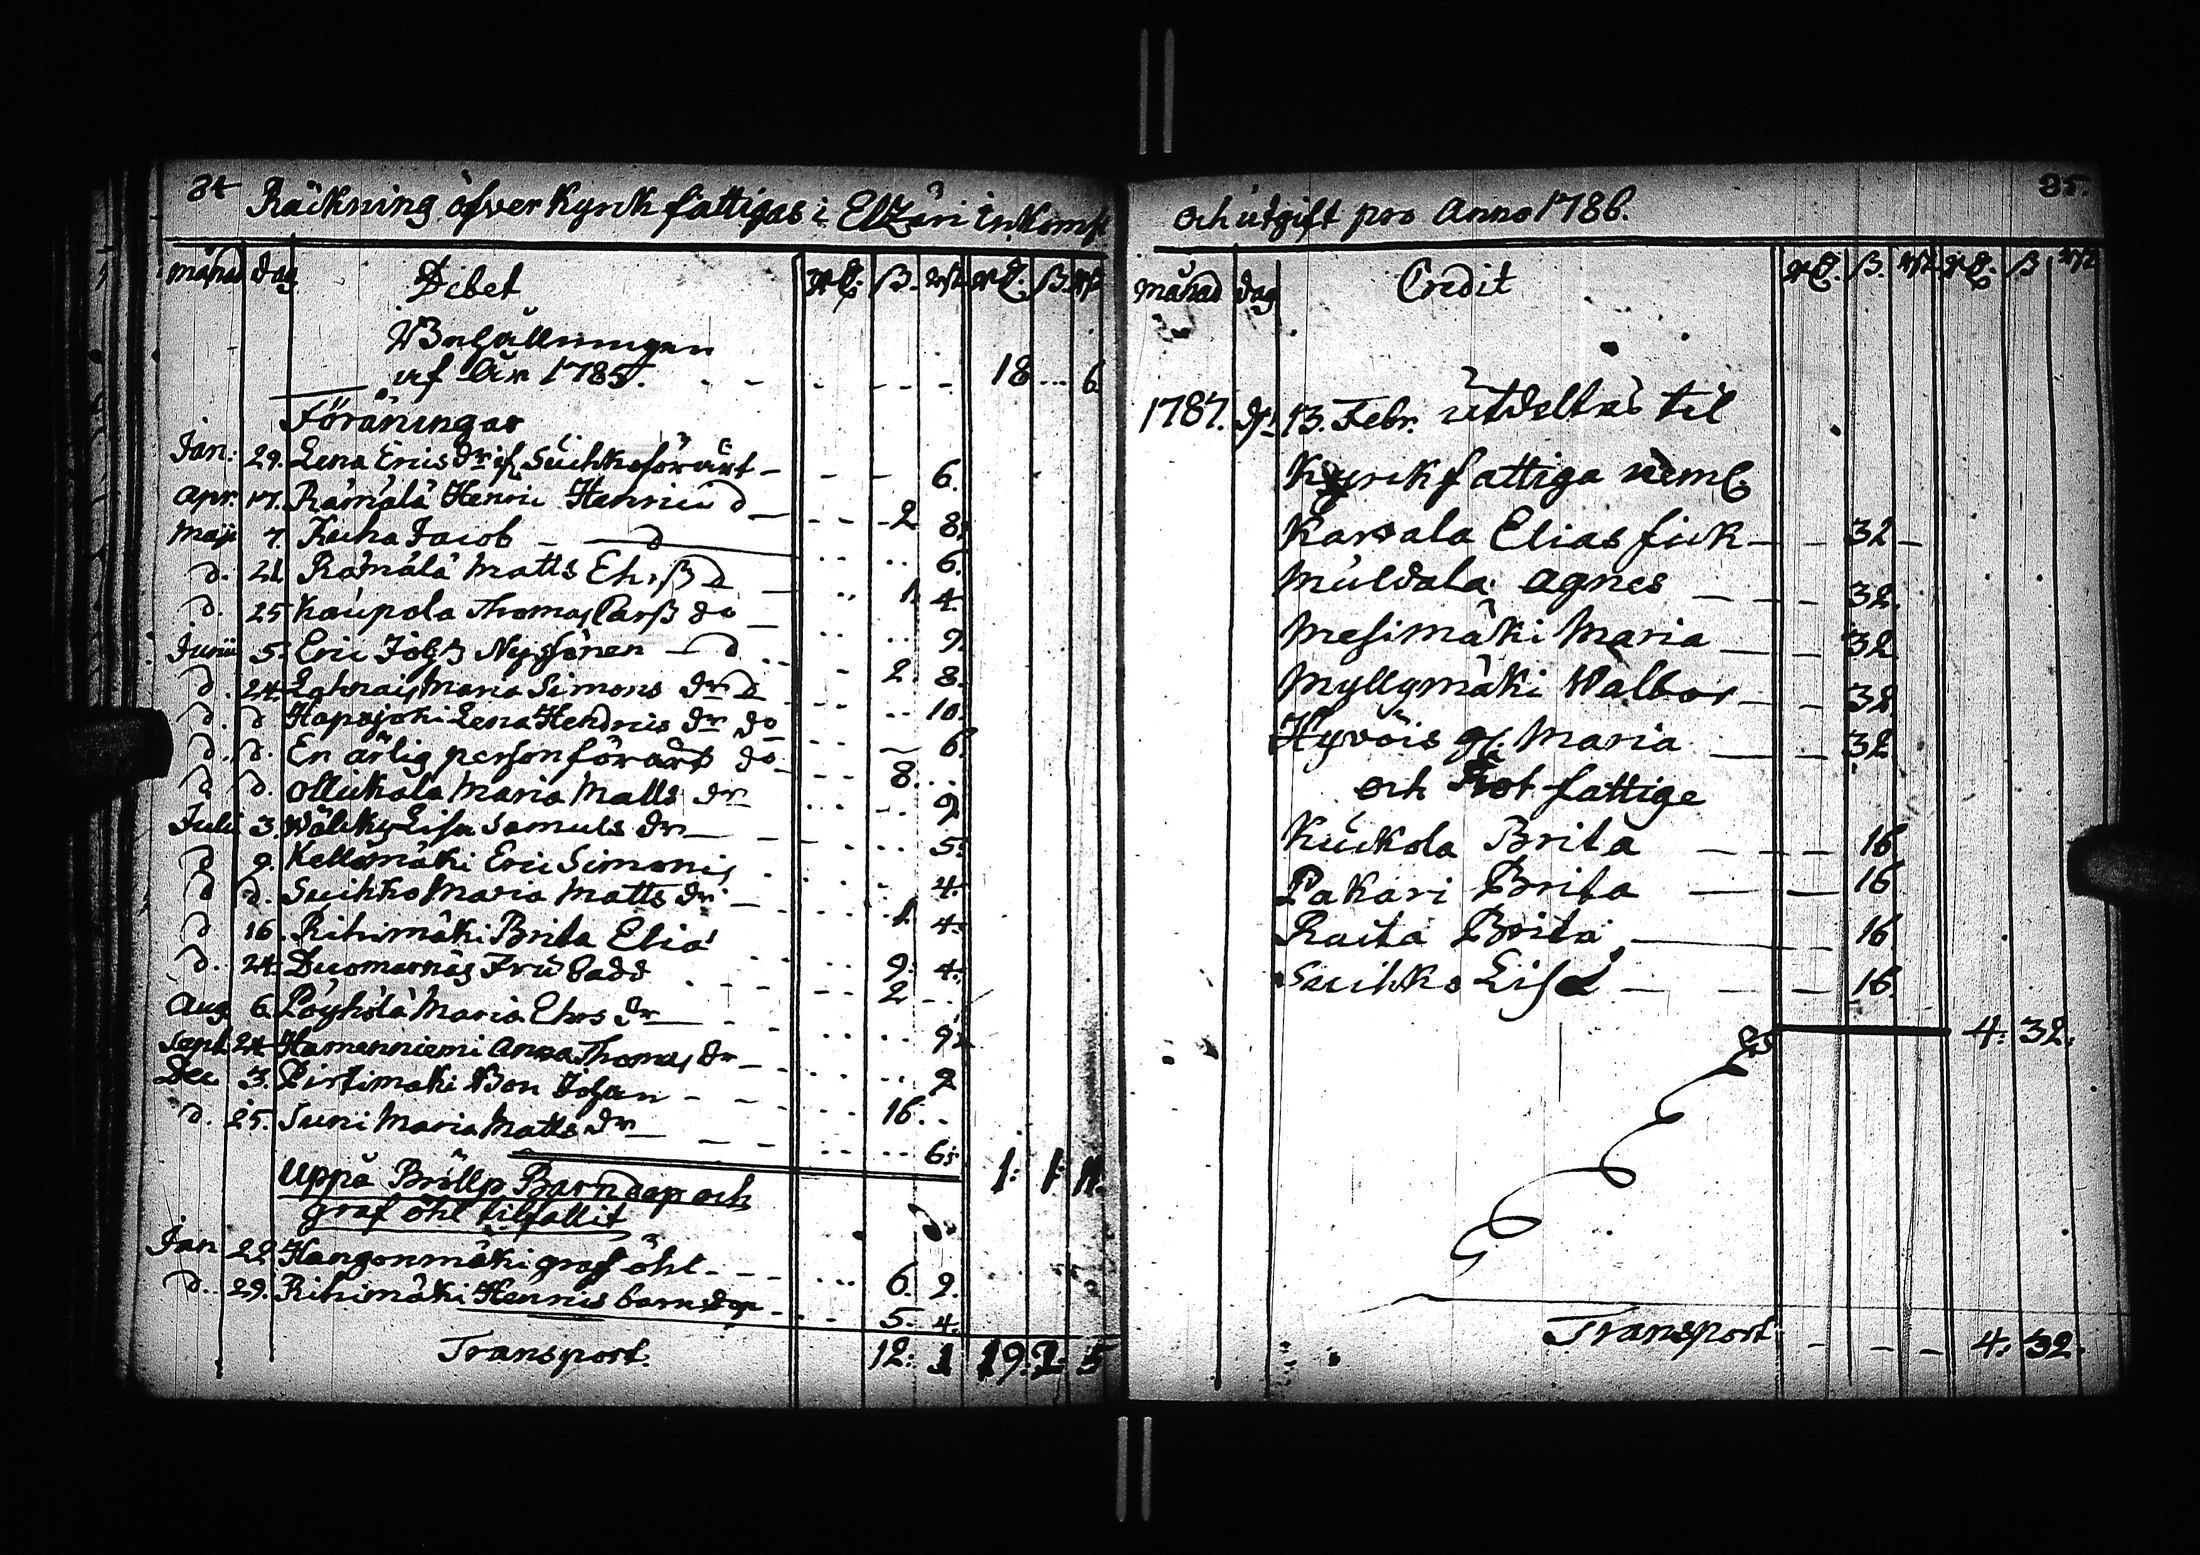 84 Räkning öfver Kyrck fattigas i Etzäri Inkomst
månad dag Debet rd. ß. rst. rd. ß. rst.
Behållningen
af Åhr 1785. 18 6
Föräningar
Jan: 29. Lena Erics dr if. Suihko förärt 6.
Apr. 17. Rämälä Henric Henrics d 2 8.
Maji 7. Keiha Jacob d 6.
d. 21 Rämälä Matts Ehrß d 1. 4.
d. 25 Kaupola Thomas Larß do 9.
Junii 5. Eric Johß Nyssönen d 2. 8.
d. 24 Maria Simons dr d 10.
d. d Hapojoki Lena Hendrics dr do 6
d. d. En ärlig person förärt do 8.
d d. Ollickala Maria Matts dr 9
Julii 3. Wälcky Lisa Samuels dr 5.
d 9. Kellomäki Eric Simonis 4.
d d. Suihko Maria Matts dr 1 4.
d 16. Rihimäki Brita Elia 9. 4.
d. 24. Duomarnäs Fru Gadd 2
Aug. 6. Pöyhölä Maria Ehrs dr 9
Sept. 24 Hamenniemi Anna Thomas dr 9
Dec 3. Pirtimäki Bon Johan 16.
d. 25. Suni Maria Matts dr 6. 1: 1: 11.
Uppå Bröllp Barndop och
graf öhl tilfallit
Jan 22 Hangonmäki graf öhl 6. 9.
d. 29. Rihimäki Henrics barndop 5. 4.
Transport. 12: 1 19. 1. 5
och utgift pro Anno 1786. 85.
månad dag Credit rd. ß. rst. rd. ß rst
1787. d. 13. Febr. utdeltes til
Kyrck fattiga neml.
Karsala Elias fick 32
Muldala Agnes 32.
Mesimäki Maria 32
Myllymäki Walbor 32.
Hyvöis gl. Maria 32
och Rot fattige
Kuckola Brita 16
Pakari Brita 16
Raita Brita 16
Suihko Lisa 16.
4: 32.
Transport 4: 32.